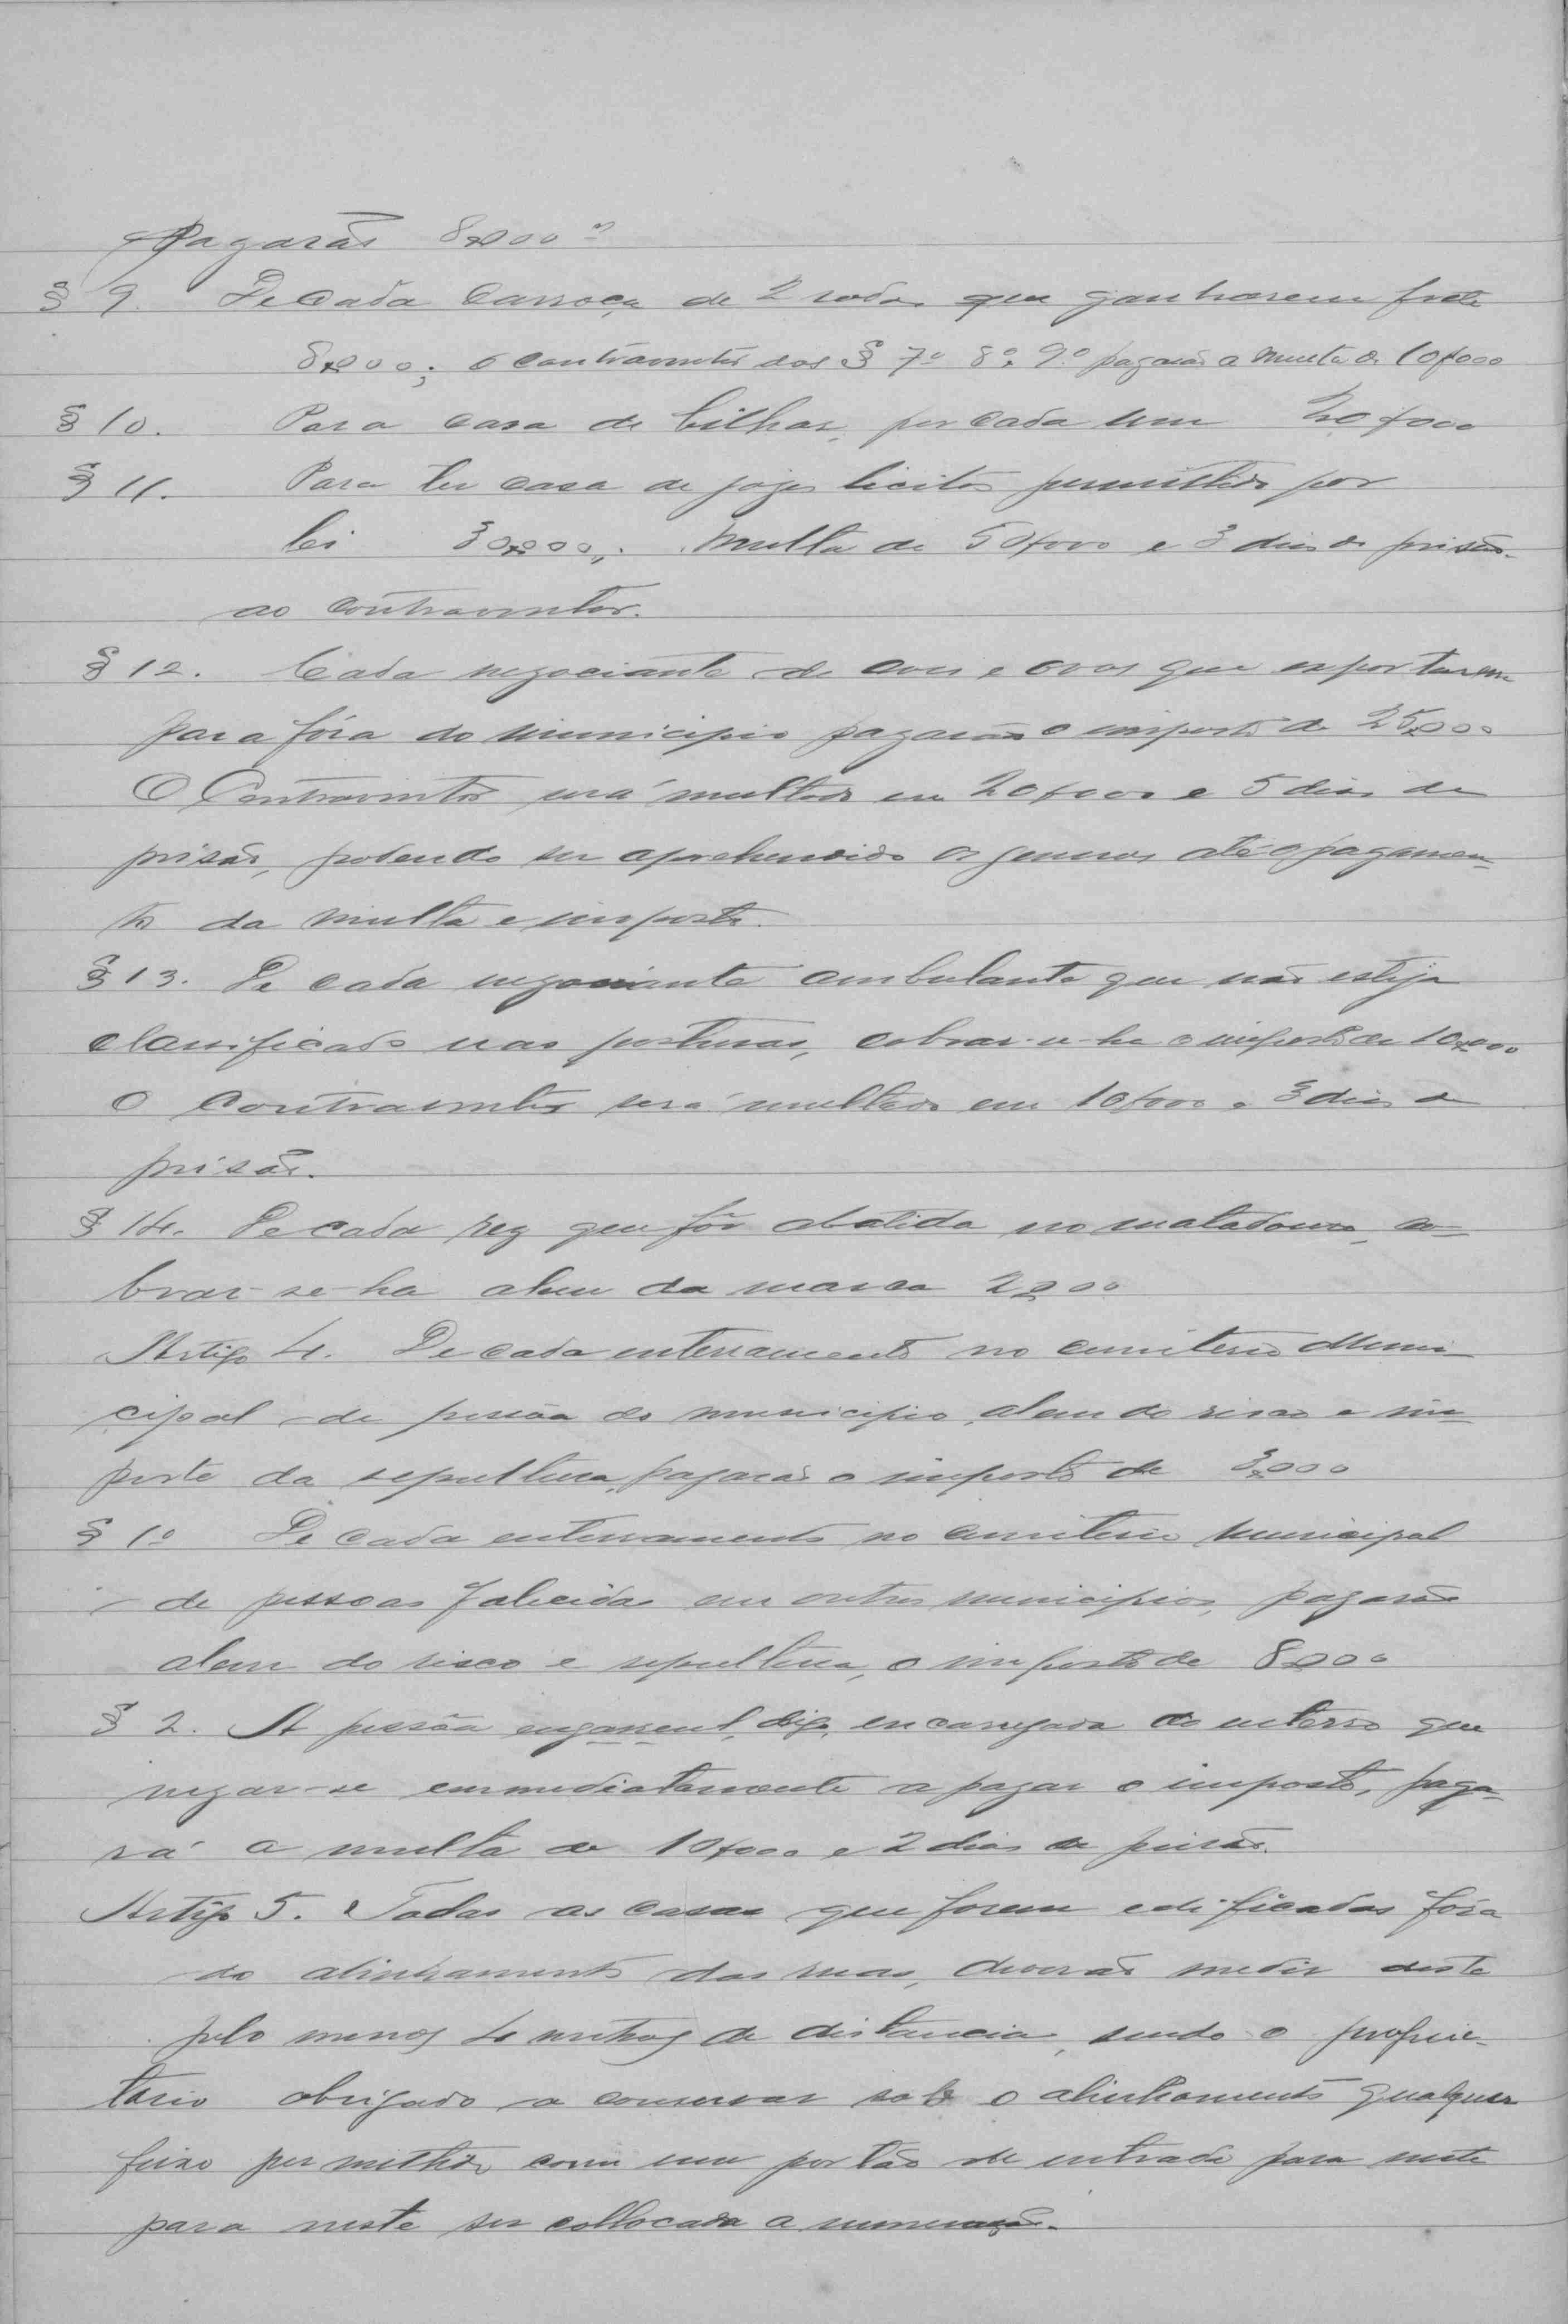 Pagarão 8$000
§ 9. De cada carroça de 2 rodas que ganharem frete
8$000; o contraventor dos § 7º 8º 9º pagará a multa de 10$000
§ 10. Para casa de bilhar, por cada um 20$000
§ 11. Para ter casa de jogos licitos permittidos por
lei 30$000; multa de 50$000 e 3 dias de prisão
ao contraventor.
§ 12. Cada negociante de aves e ovos que exportarem
para fóra do municipio pagarão o imposto de 25$000
O Contraventor será multado em 20$000 e 5 dias de
prisão, podendo ser aprehendido os generos até o pagamen-
to da multa e imposto.
§ 13. De cada negociante ambulante que não esteja
classificado nas posturas, cobrar-se-ha o imposto de 10$000
O contraventor será multado em 10$000 e 3 dias de
prisão.
§ 14. De cada rez que fôr abatida no matadouro, co-
brar-se-ha alem da marca 2$000
Artigo 4. De cada enterramento no cemiterio Muni-
cipal de pessôa do municipio, alem do risco e im-
porte da sepultura, pagarão o imposto de 3$000
§ 1º De cada enterramento no cemiterio Municipal
de pessoas falecidas em outros municipios, pagarão
alem do risco e sepultura, o imposto de 8$000
§ 2. A pessôa digo, encarregada do enterro que
negar-se emmediatamente a pagar o imposto, paga-
rá a multa de 10$000 e 2 dias de prisão.
Artigo 5. Todas as casas que forem edificadas fóra
do alinhamento das ruas, deverão medir deste
pelo menos 4 metros de distancia, sendo o proprie-
tario obrigado a conservar sob o alinhamento qualquer
feixo permittido com um portão de entrada para neste
para neste ser collocada a numeração.